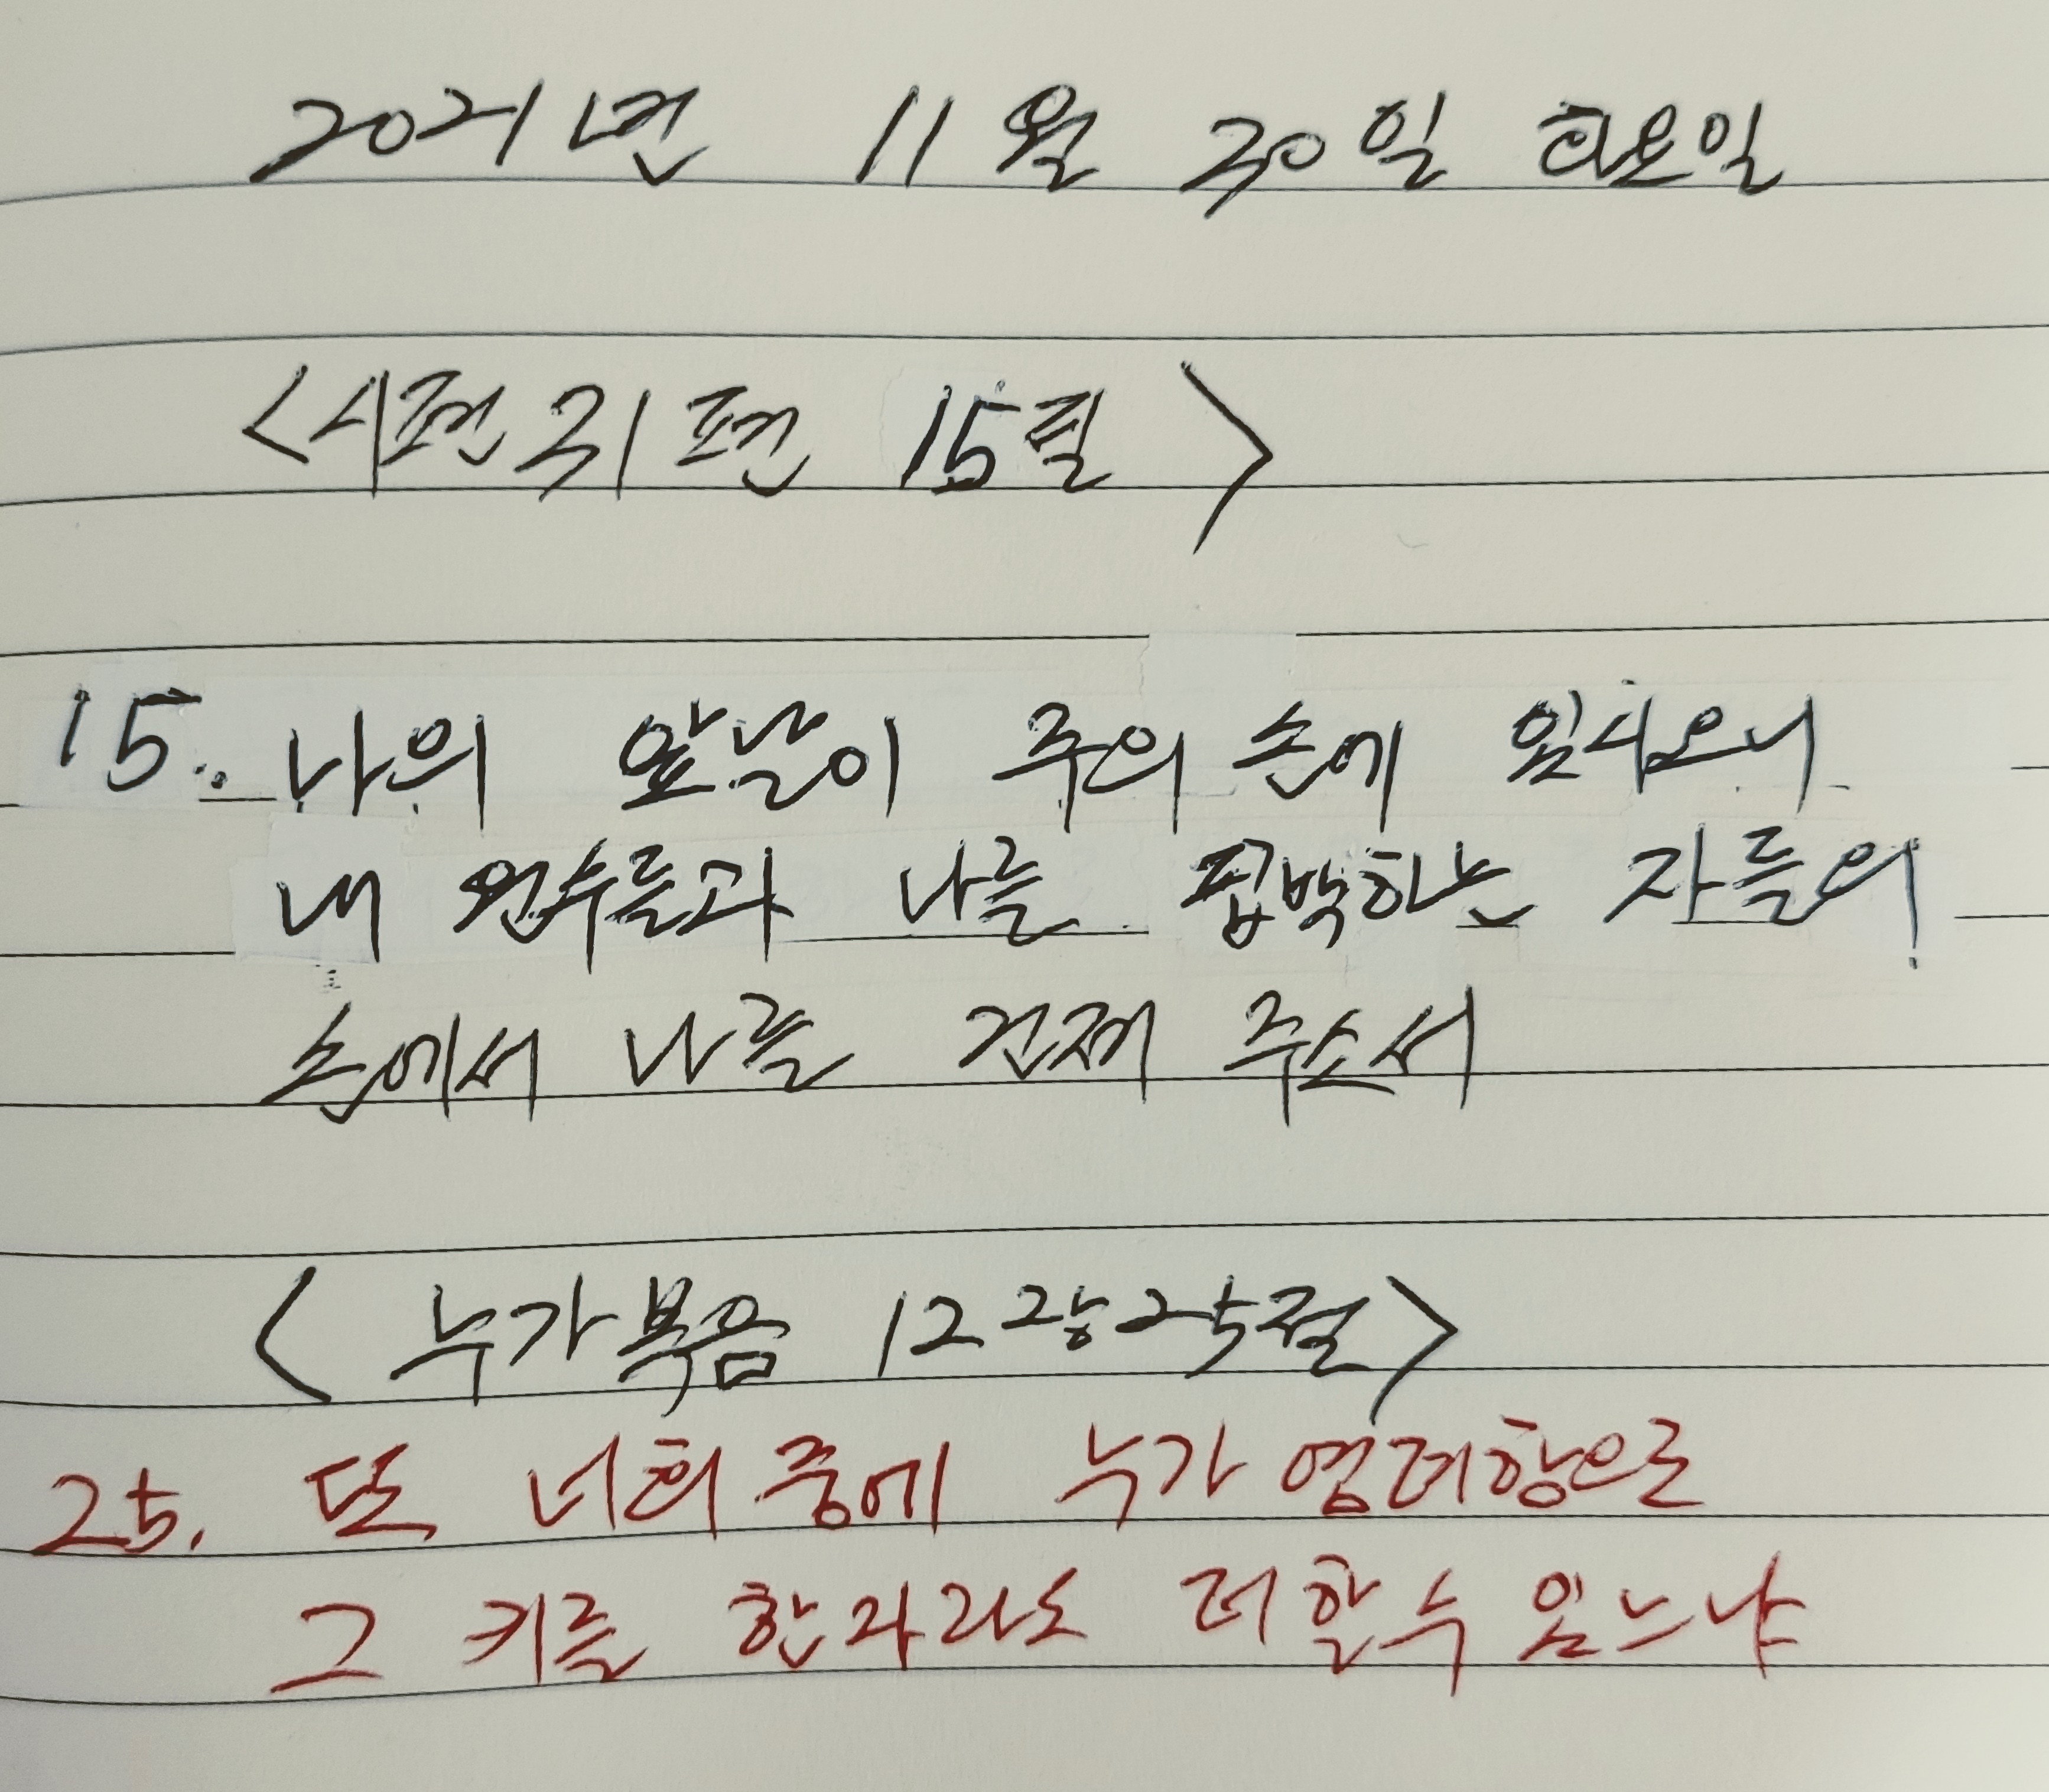 2021년 11월 30일 화요일
<시편 31편 15절>
15. 나의 앞날이 주의 손에 있사오니
내 원수들과 나를 핍박하는 자들의
손에서 나를 건져 주소서
<누가복음 12장 25절>
25. 또 너희 중에 누가 염려함으로
그 키를 한 자라도 더할 수 있느냐